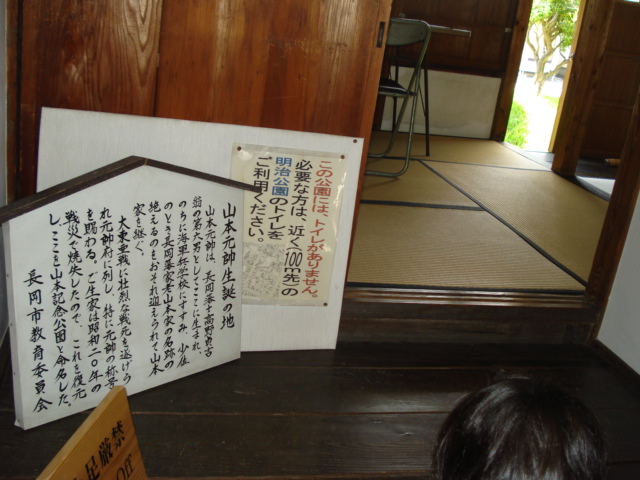 山本元帥生誕の地
山本元帥は、長岡藩士高野貞吉
翁の第六男としてここに生まれ、
のちに海軍兵学校にすすみ、少佐
のとき長岡藩家老山本家の名跡の
絶えるのもおそれ迎えられて山本
家を継ぐ。
大東亜戦に壮烈な戦死を遂げら
れ元帥府に列し、特に元帥の称号
を賜わる。ご生家は昭和二〇年の
戦災で焼失したので、これを復元
しここを山本記念公園と命名した。
長岡市教育委員会
この公園には、トイレがありません。
必要な方は、近く(100m先)の
明治公園のトイレを
ご利用ください。
足厳禁
Off